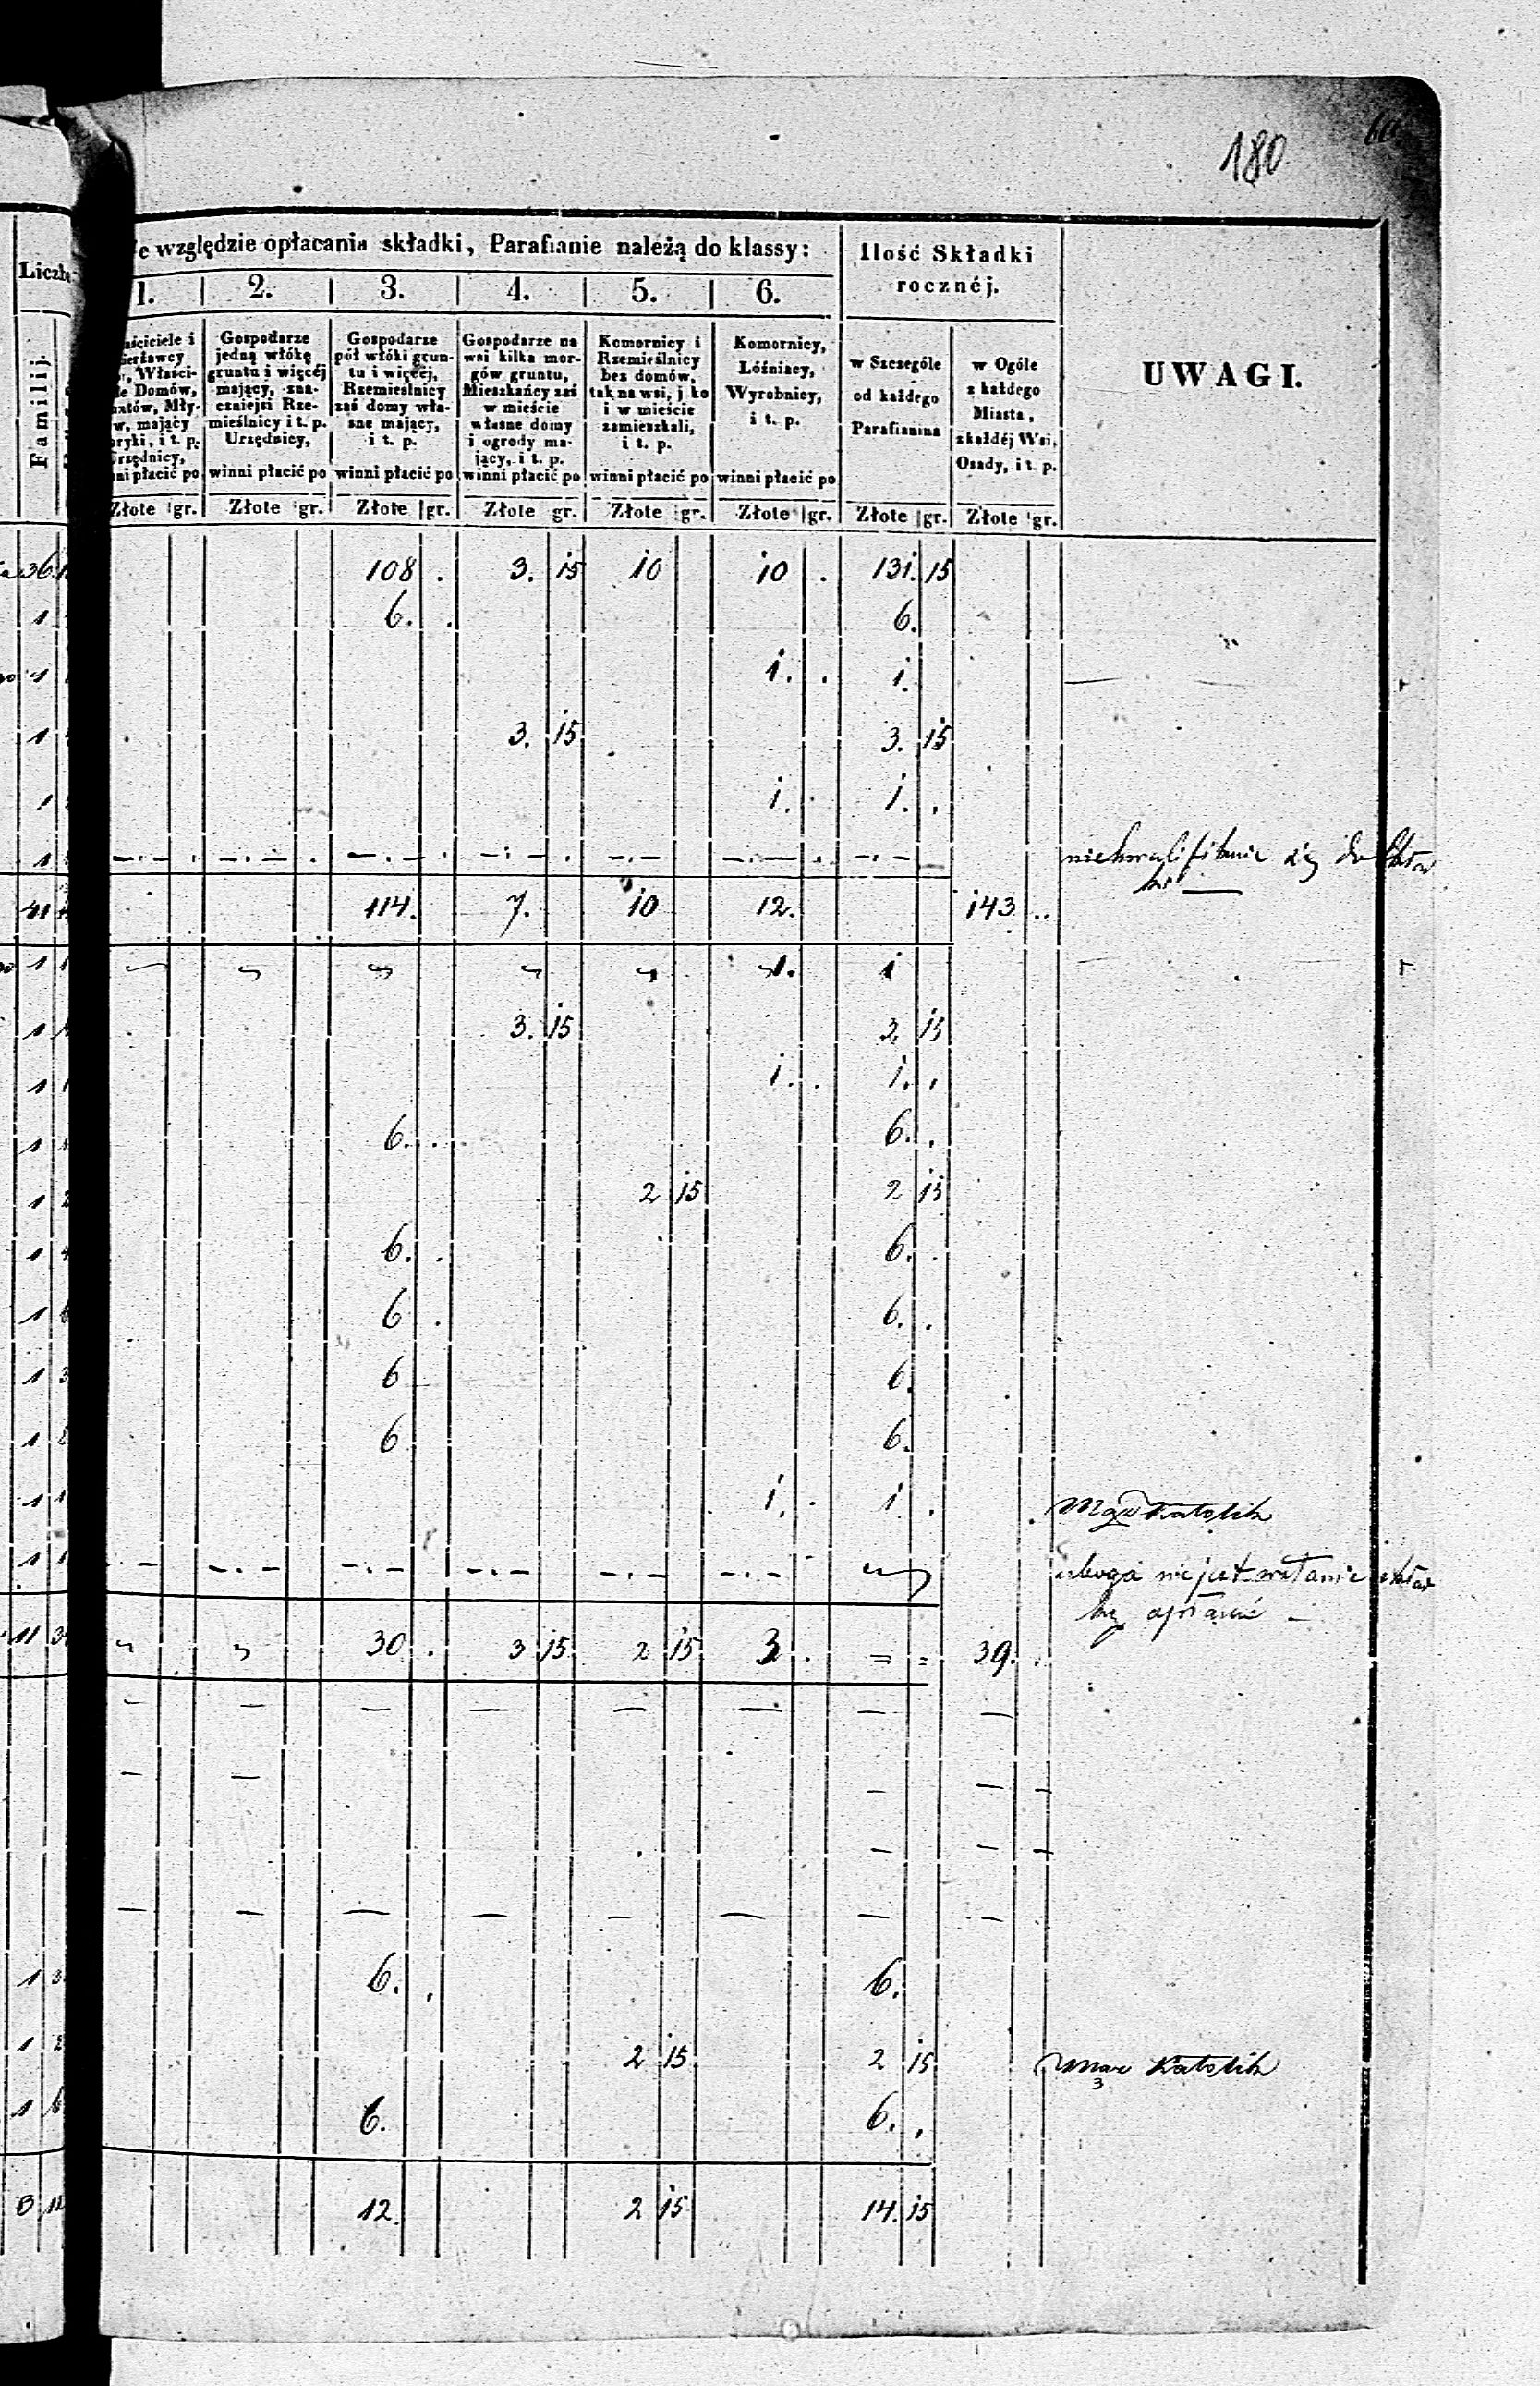 180
e względzie opłacania składki, Parafianie należą do klassy:
Ilość Składki
rocznéj.
UWAGI.
Liczba
Familij.
1. 2. 3. 4. 5. 6.
ściciele i
ierżawcy
r, Właści-
le Domów,
któw, Mły-
w, mający
ryki, i t. p.
Urzędnicy,
ni płacić po
Gospodarze
jedną włókę
gruntu i więcéj
mający, zna-
czniejsi Rze-
mieślnicy i t. p.
Urzędnicy,
winni płacić po
Gospodarze
pół włóki grun-
tu i więcéj,
Rzemieślnicy
zaś domy wła-
sne mający,
i t. p.
winni płacić po
Gospodarze na
wsi kilka mor-
gów gruntu,
Mieszkańcy zaś
w mieście
własne domy
i ogrody ma-
jący, i t. p.
winni płacić po
Komornicy i
Rzemieślnicy
bez domów,
tak na wsi, j ko
i w mieście
zamieszkali,
i t. p.
winni płacić po
Komornicy,
Lóźniacy,
Wyrobnicy,
i t. p.
winni płacić po
w Szczególe
od każdego
Parafianina
w Ogóle
z każdego
Miasta,
z każdéj Wsi,
Osady, i t. p.
Złote gr. Złote gr. Złote gr. Złote gr. Złote gr. Złote gr. Złote gr. Złote gr.
36 108 . 3. 15 10 10 . 131. 15
1 6. . 6.
1 1. . 1.
1 3. 15 3. 15
1 1. . 1. .
1 — . — . — . — . — . — . —
41 114. 7. 10 12. 143 ..
1 1 1. 1
1 3. 15 3. 15
1 1. . 1. .
1 6. . 6. .
1 2 15 2 15
1 6. . 6. .
1 6 . 6. .
1 3 6 6.
1 6 6.
1 1 1. . 1 . Katolik
1 1 — . — . — . — . — . —
11 3 30 . 3 15 2 15 3 . = = 39. .
— — — — — — — —
— — — — —
— — —
— — — — — — — —
1 3 6. . 6.
1 2 2 15 2 15 Katolik
1 6 6. 6. .
12. 2 15 14. 15